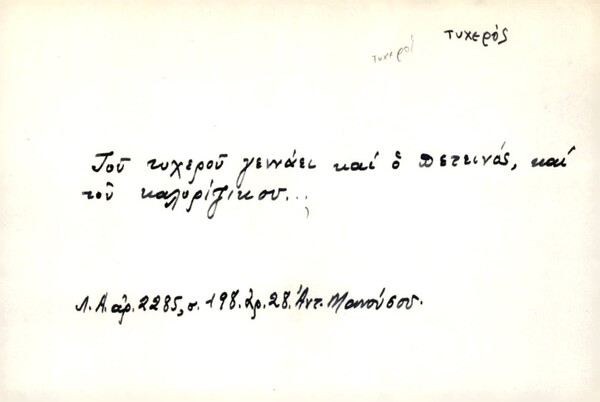 τυχερός
τυχερό
Τοῦ τυχεροῦ γεννάει καί ὁ πετεινός, καί
τοῦ καλορίζικου...
Λ.Α. ἀρ. 2285, σ. 198. ἀρ. 28. Ἀντ. Μανούσου.